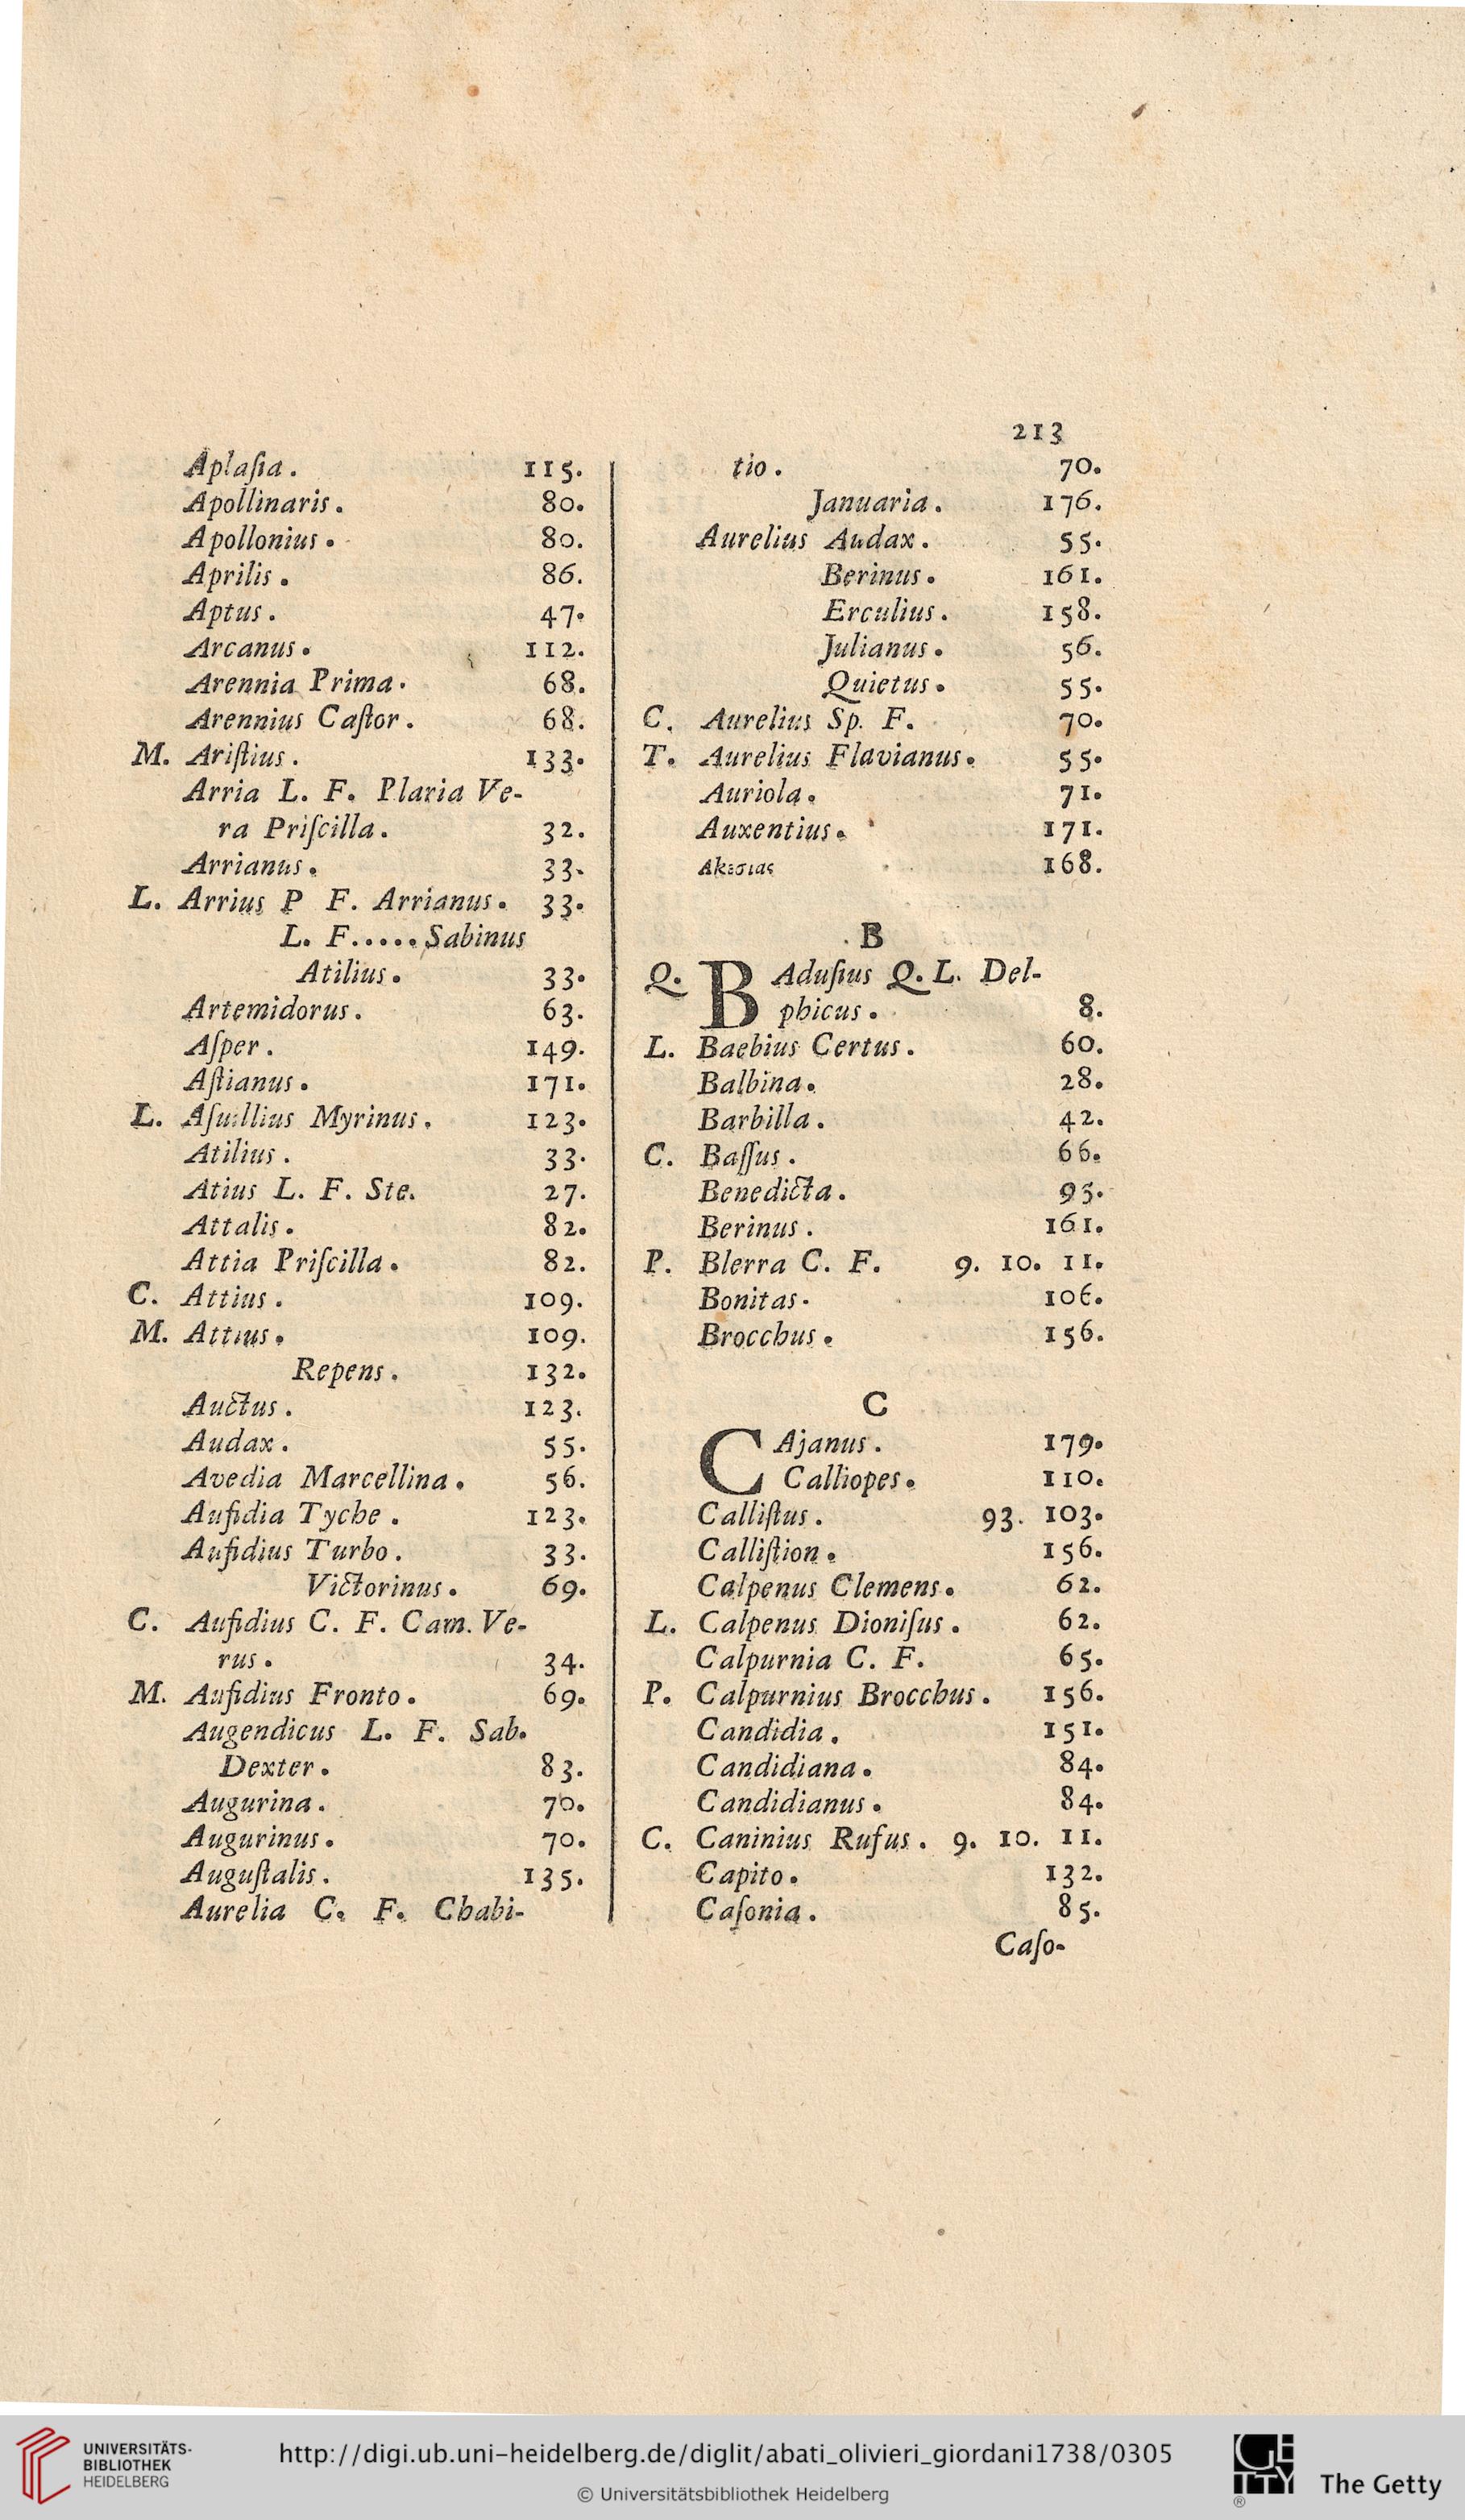 213
Aplaſia. 115.
Apollinaris. 80.
Apollonius. 80.
Aprilis. 86.
Aptus. 47.
Arcanus. 112.
Arennia Prima. 68.
Arennius Caſtor. 68.
M. Ariſtius. 133.
Arria L. F. Plaria Ve-
ra Priſcilla. 32.
Arrianus. 33.
L. Arrius P F. Arrianus. 33.
L. F..... Sabinus
Atilius. 33.
Artemidorus. 63.
Aſper. 149.
Aſtianus. 171.
L. Aſuillius Myrinus. 123.
Atilius. 33.
Atius L. F. Ste. 27.
Attalis. 82.
Attia Priſcilla. 82.
C. Attius. 109.
M. Attius. 109.
Repens. 132.
Auctus. 123.
Audax. 55.
Avedia Marcellina. 56.
Aufidia Tyche. 123.
Aufidius Turbo. 33.
Victorinus. 69.
C. Aufidius C. F. Cam. Ve-
rus. 34.
M. Aufidius Fronto. 69.
Augendicus L. F. Sab.
Dexter. 83.
Augurina. 70.
Augurinus. 70.
Auguſtalis. 135.
Aurelia C. F. Chabi-
tio. 70.
Januaria. 176.
Aurelius Audax. 55.
Berinus. 161.
Erculius. 158.
Julianus. 56.
Quietus. 55.
C. Aurelius Sp. F. 70.
T. Aurelius Flavianus. 55.
Auriola. 71.
Auxentius. 171.
Ακεσιας 168.
B
Q. BAduſius Q. L. Del-
phicus. 8.
L. Baebius Certus. 60.
Balbina. 28.
Barbilla. 42.
C. Baſſus. 66.
Benedicta. 95.
Berinus. 161.
P. Blerra C. F. 9. 10. 11.
Bonitas. 106.
Brocchus. 156.
C
CAjanus. 179.
Calliopes. 110.
Calliſtus. 93. 103.
Calliſtion. 156.
Calpenus Clemens. 62.
L. Calpenus Dioniſus. 62.
Calpurnia C. F. 65.
P. Calpurnius Brocchus. 156.
Candidia. 151.
Candidiana. 84.
Candidianus. 84.
C. Caninius Rufus. 9. 10. 11.
Capito. 132.
Caſonia. 85.
Caſo-
UNIVERSITÄTS-
BIBLIOTHEK
HEIDELBERG
http://digi.ub.uni-heidelberg.de/diglit/abati_olivieri_giordani1738/0305
© Universitätsbibliothek Heidelberg
GETTY
®
The Getty